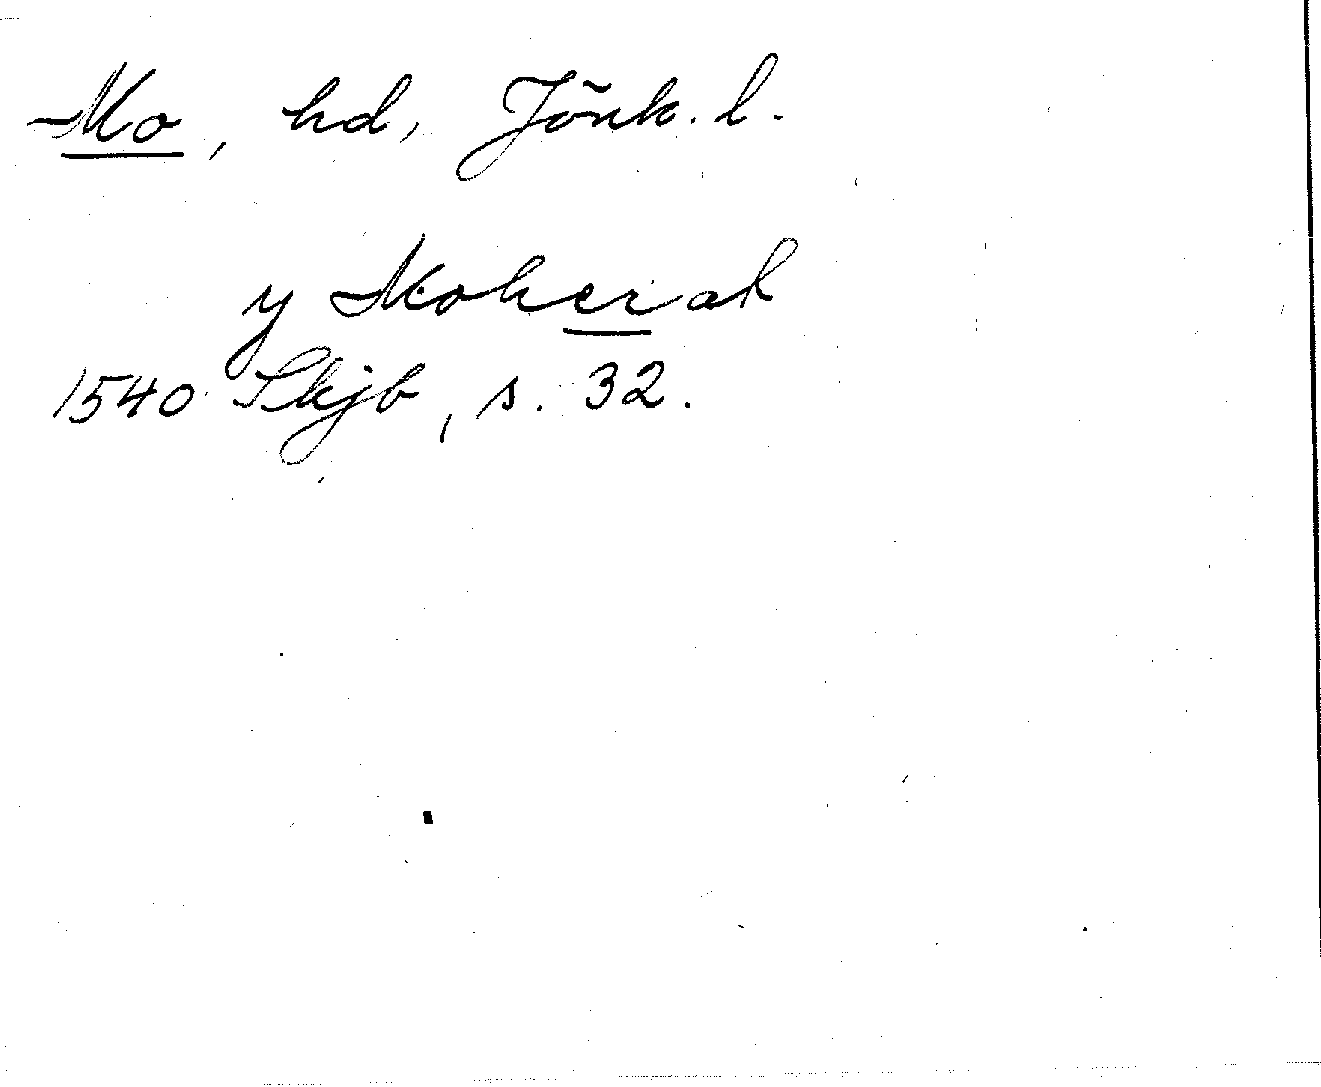 Mo, hd, Jönk. l.
y Moheradh
1540 Skjb, s. 32.